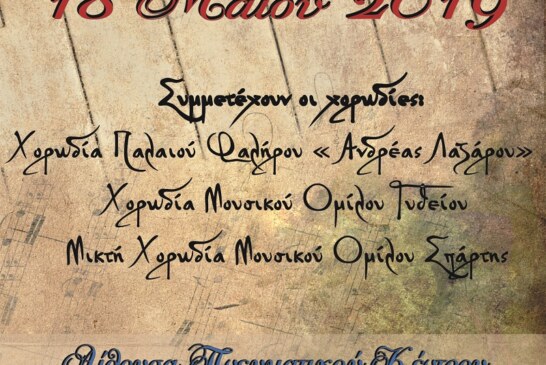 18 Μαΐου 2019
Συμμετέχουν οι χορωδίες:
Χορωδία Παλαιού Φαλήρου « Ανδρέας Λαζάρου»
Χορωδία Μουσικού Ομίλου Γυθείου
Μικτή Χορωδία Μουσικού Ομίλου Σπάρτης
Αίθουσα Πνευματικού Κέντρου